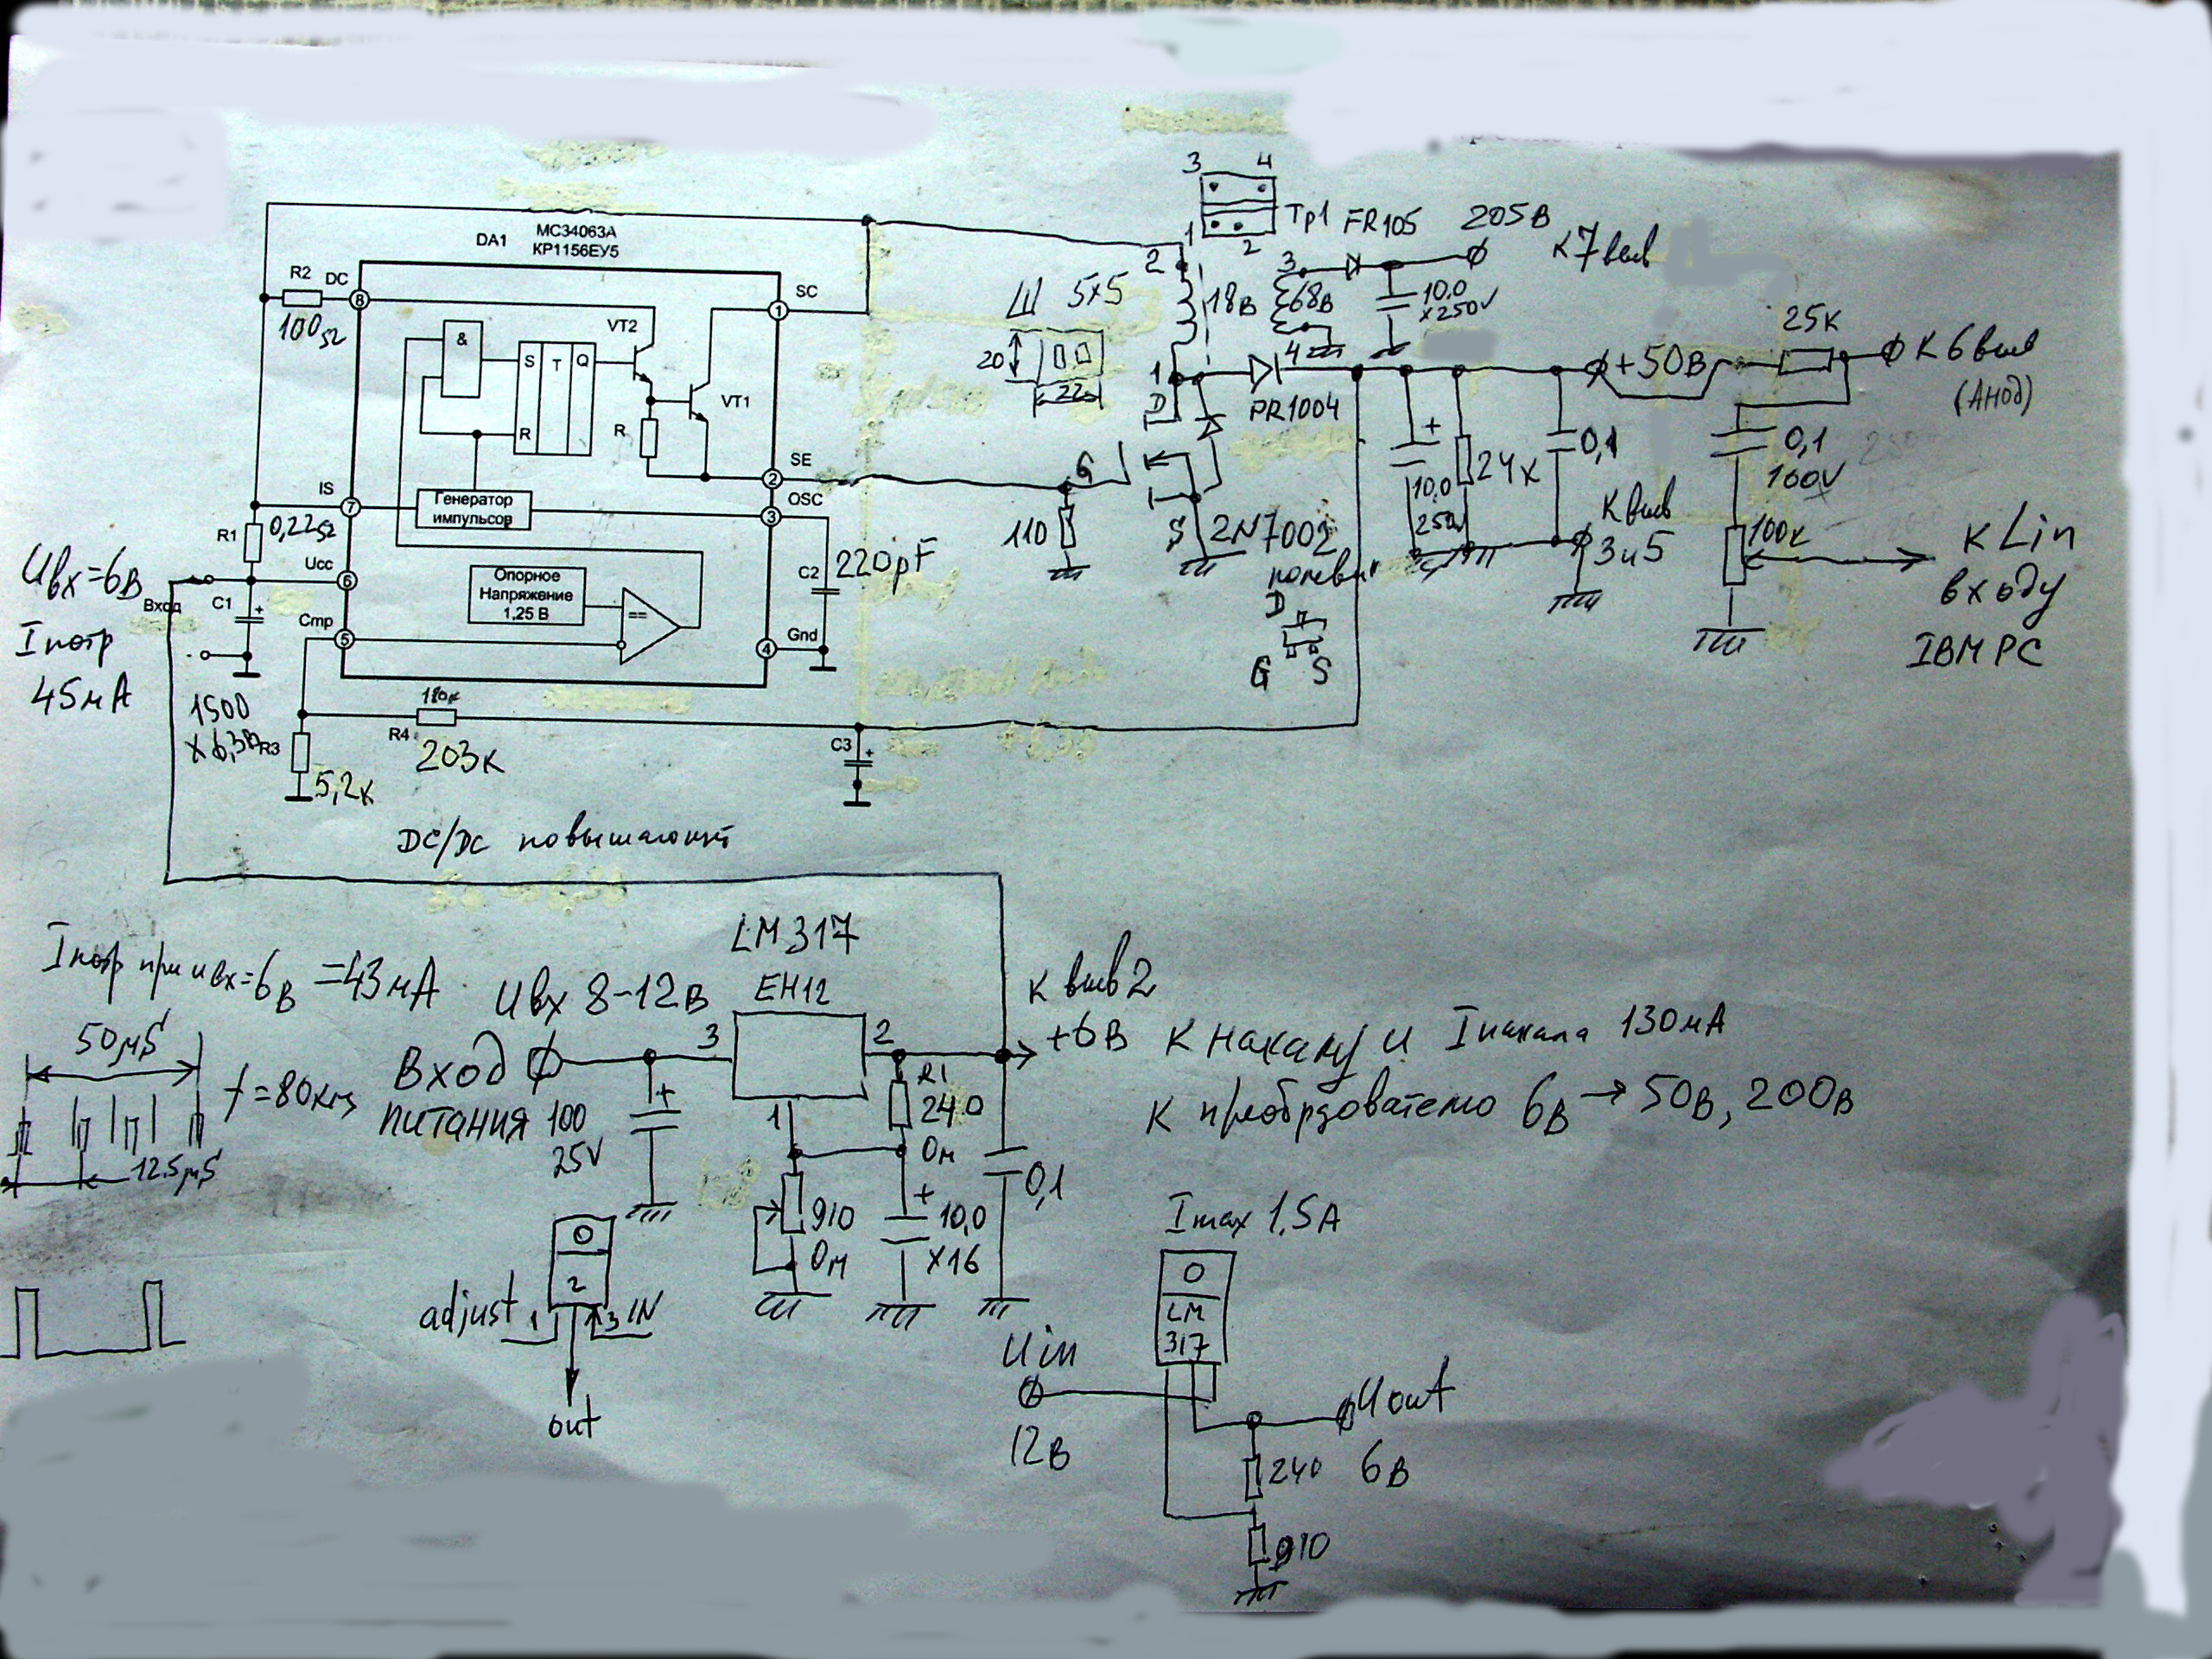 3 4
Тр1 FR105 205В
1 2
К 7 выв
MC34063A
DA1
КР1156ЕУ5
2
3
Ш 5×5
18в
68в
10,0
×250V
R2
DC
8
100Ω
SC
1
VT2
&
S T Q
R
R
VT1
20
22
1
4
D
PR1004
+50В
25к
К 6 выв
(Анод)
SE
2
G
+
24к
0,1
0,1
100V
10,0
250V
IS
7
Генератор
импульсов
OSC
3
R1
0,22Ω
110
S 2N7002
К выв
3 и 5
100к
К Lin
входу
IBM PC
Uвх=6В
Вход
Iпотр
45мА
C1
+
-
Ucc
6
Опорное
Напряжение
1,25 В
==
C2
220pF
D
G S
Cmp
5
Gnd
4
1500
×6,3В
R3
5,2к
180к
R4
203к
C3
+
DC/DC повышающий
LM317
EH12
Iпотр при Uвх=6в =43мА
Uвх 8-12в
3
2
к выв 2
+6В
К накалу и Iнакала 130мА
К преобрзователю 6в → 50в, 200в
50μS
f=80кгц
12.5μS
Вход
питания
100
25V
+
1
R1
240
Ом
910
Ом
+
10,0
×16
0,1
O
2
adjust 1
3 IN
out
Imax 1,5А
O
LM
317
Uin
12в
Uout
6в
240
910